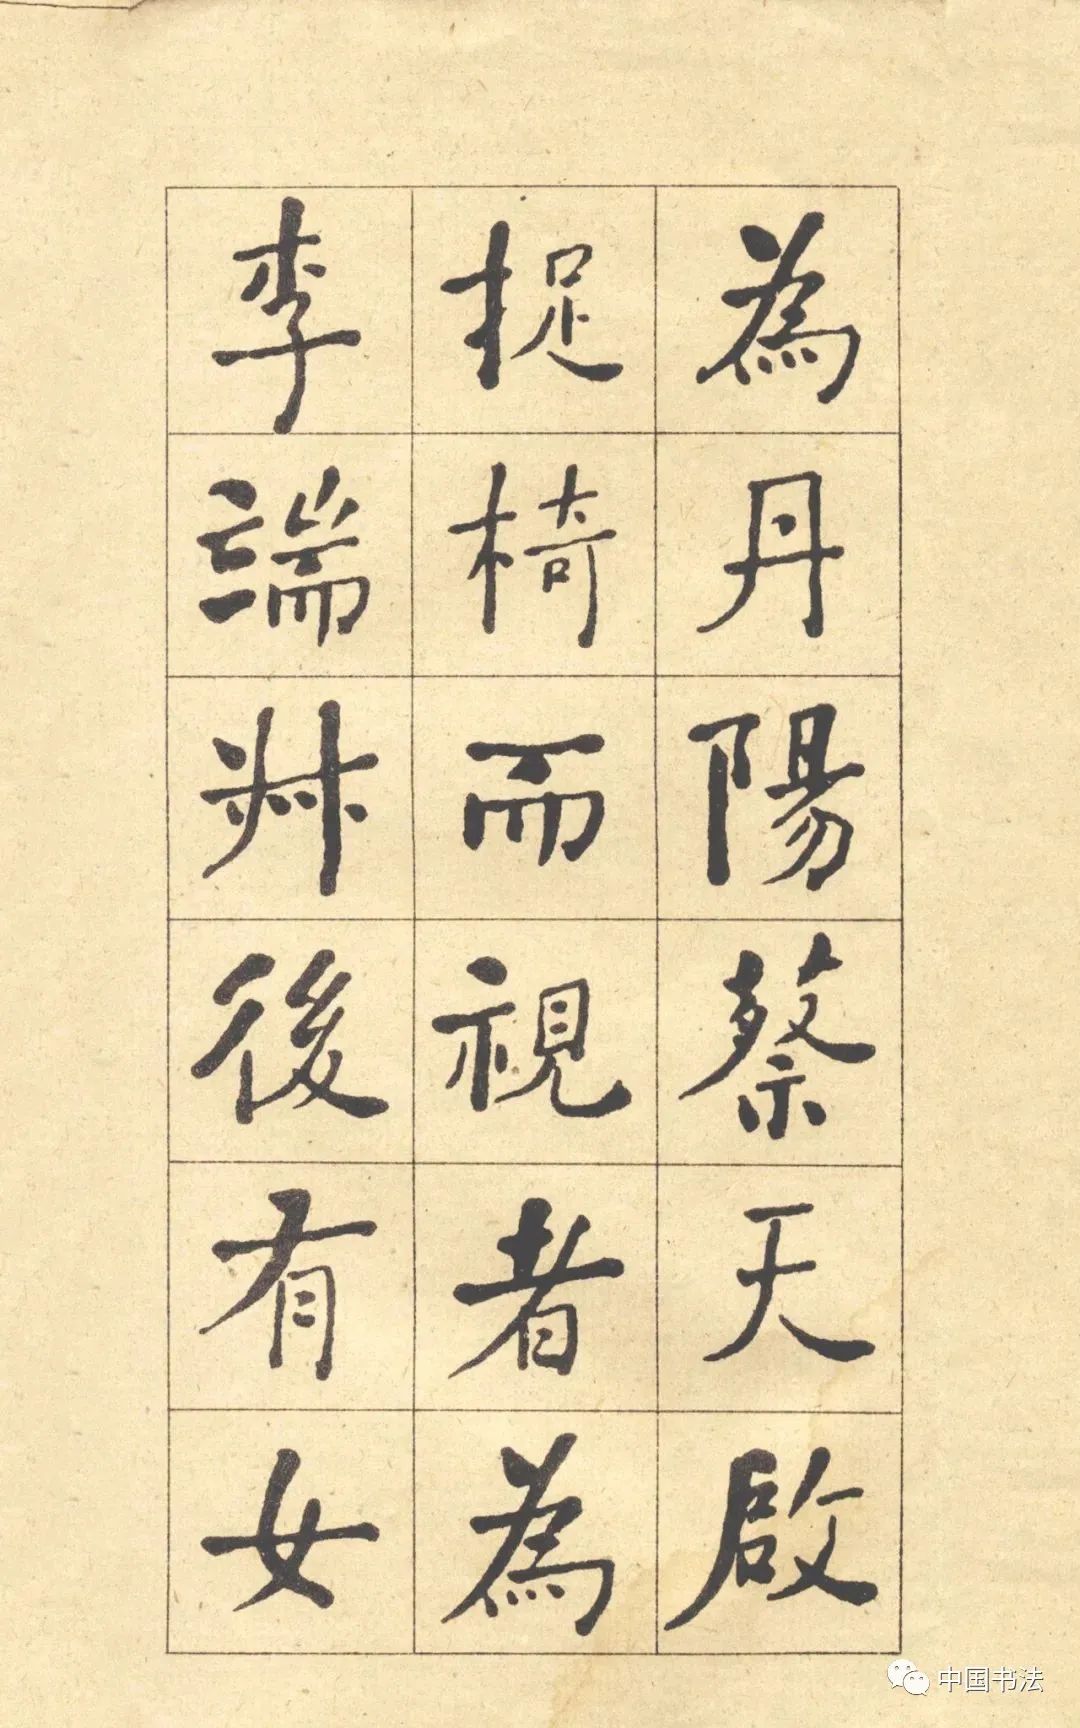 為丹陽蔡天啟
捉椅而視者為
李端叔後有女
中国书法